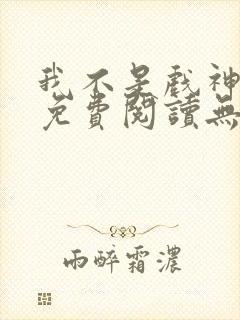 我不是戲神
免費閱讀無
雨醉霜濃